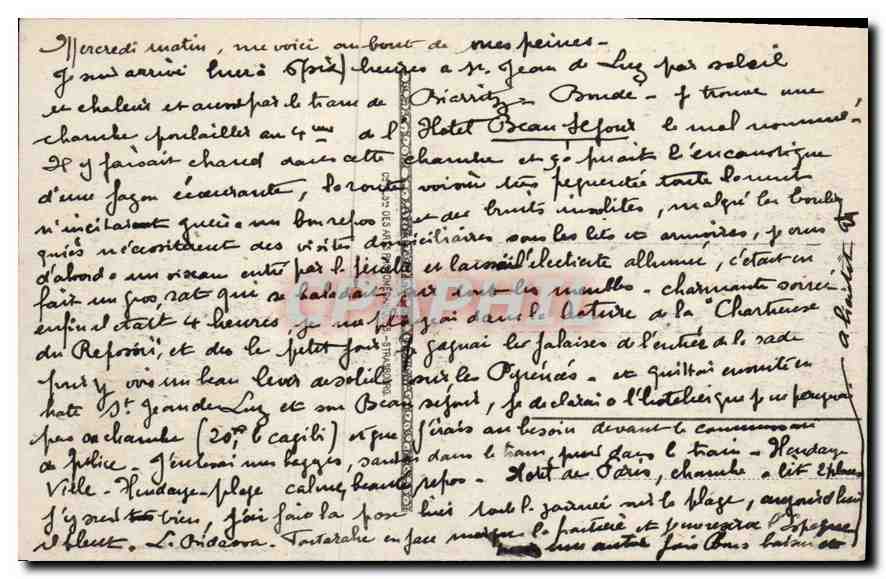 Mercredi matin, me voici au bout de mes peines -
Je suis arrivé hier à 6 (six) heures à St. Jean de Luz par soleil
et chaleur et aussi par le tram de Biarritz - Bondé - Je trouve une
chambre poulailler au 4eme de l'Hotel Beau Sejour le mal nommé -
Il y faisait chaud dans cette chambre et ça puait l'encaustique
d'une façon écoeurante, la route voisine très frequentée toute la nuit
n'incitaient guère à un bon repos et des bruits insolites, malgré les
qui nécessitèrent des visites domiciliaires sous les lits et armoires, je crus
d'abord à un oiseau entré par la fenêtre et laissai l'électricité allumée, c'était en
fait un gros rat qui se baladait sur tous les meubles - charmante soirée
enfin il était 4 heures, je me plongeai dans la lecture de la "Chartreuse
du Reposoir", et dès le petit jour je gagnai les falaises de l'entrée de la rade
pour y voir un beau lever de soleil sur les Pyrénées - et quittai ensuite en
hate St Jean de Luz et son Beau sejour, je déclarai à l'hotelier que je ne payerai
pas sa chambre (20, ) et que j'irais au besoin devant le commissaire
de Police - J'enlevai mes bagages, sautai dans le tram, puis dans le train - Hendaye
Ville - Hendaye-plage calme, beauté, repos - Hotel de Paris, chambre à lit 2 places
j'y suis très bien, j'ai fait la pose hier toute la journée sur la plage, aujourd'hui
il pleut. La Bidassoa - Fontarabie en face marque la frontière et je verrai l'Espagne
une autre fois Bons baisers
C DES ARTS PHOTOMEC
STRASBOURG
CPAPHIL